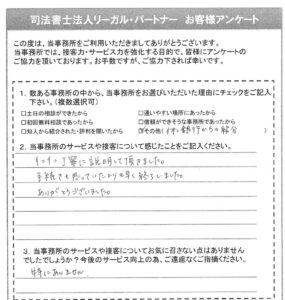 司法書士法人リーガル・パートナー お客様アンケート
この度は、当事務所をご利用いただきましてありがとうございます。
当事務所では、接客力・サービス力を強化する目的で、皆様にアンケートの
ご協力を頂いております。お手数ですが、ご協力下されば幸いです。
1. 数ある事務所の中から、当事務所をお選びいただいた理由にチェックをご記入
下さい。(複数選択可)
□土日の相談ができたから □通いやすい場所にあったから
□初回無料相談であったから □信頼ができそうな事務所であったから
□知人から紹介された・評判を聞いたから ☑その他(イオン銀行からの紹介)
2. 当事務所のサービスや接客について感じたことをご記入ください。
丁寧に説明して頂きました。
手続きも思っていたよりも早く終りました。
ありがとうございました。
3. 当事務所のサービスや接客についてお気に召さない点はありません
でしたでしょうか?今後のサービス向上の為、ご遠慮なくご指摘ください。
特にありません